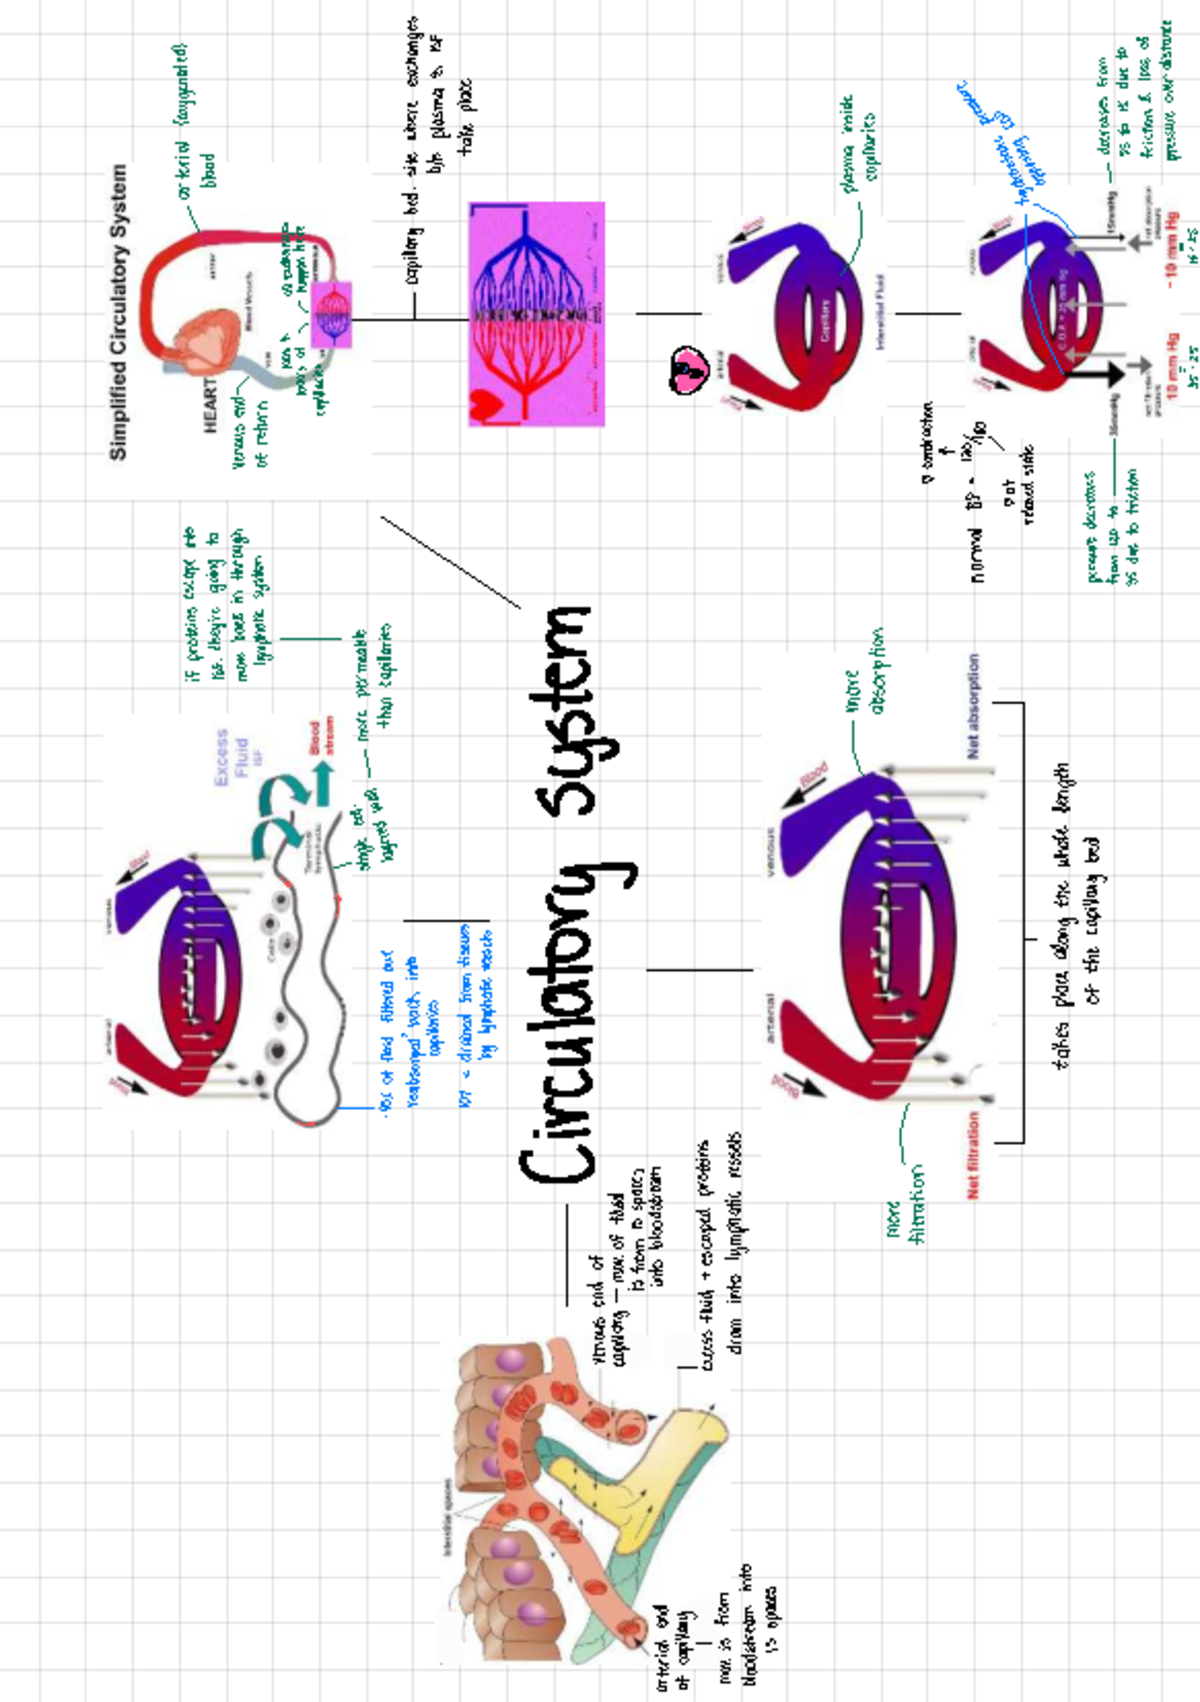 Circulatory System
Simplified Circulatory System
arterial (oxygenated)
blood
HEART
Blood Vessels
venous end
of return
capillaries
capillary bed: site where exchanges
b/n plasma & ISF
take place
venous
arterial
Capillary
Interstitial Fluid
plasma inside
capillaries
decreases from
35 to 15 due to
friction & loss of
pressure over distance
35mmHg
15mmHg
10 mm Hg
-10 mm Hg
35 - 25
15 - 25
normal BP = 120/80
contraction
at
relaxed state
pressure decreases
from 120 to
35 due to friction
if proteins escape into
ISF, they're going to
move back in through
lymphatic system
more permeable
than capillaries
single cell
layered wall
Excess
Fluid
ISF
Blood
stream
Terminal
lymphatic
Cells
Blood
arterial
venous
90% of fluid filtered out
"reabsorbed" back into
capillaries
10% = drained from tissues
by lymphatic vessels
more
absorption
more
filtration
venous
arterial
Blood
Blood
Net filtration
Net absorption
takes place along the whole length
of the capillary bed
venous end of
capillary — mov. of fluid
is from IS spaces
into bloodstream
excess fluid + escaped proteins
drain into lymphatic vessels
Interstitial spaces
arterial end
of capillary
mov. is from
bloodstream into
IS spaces